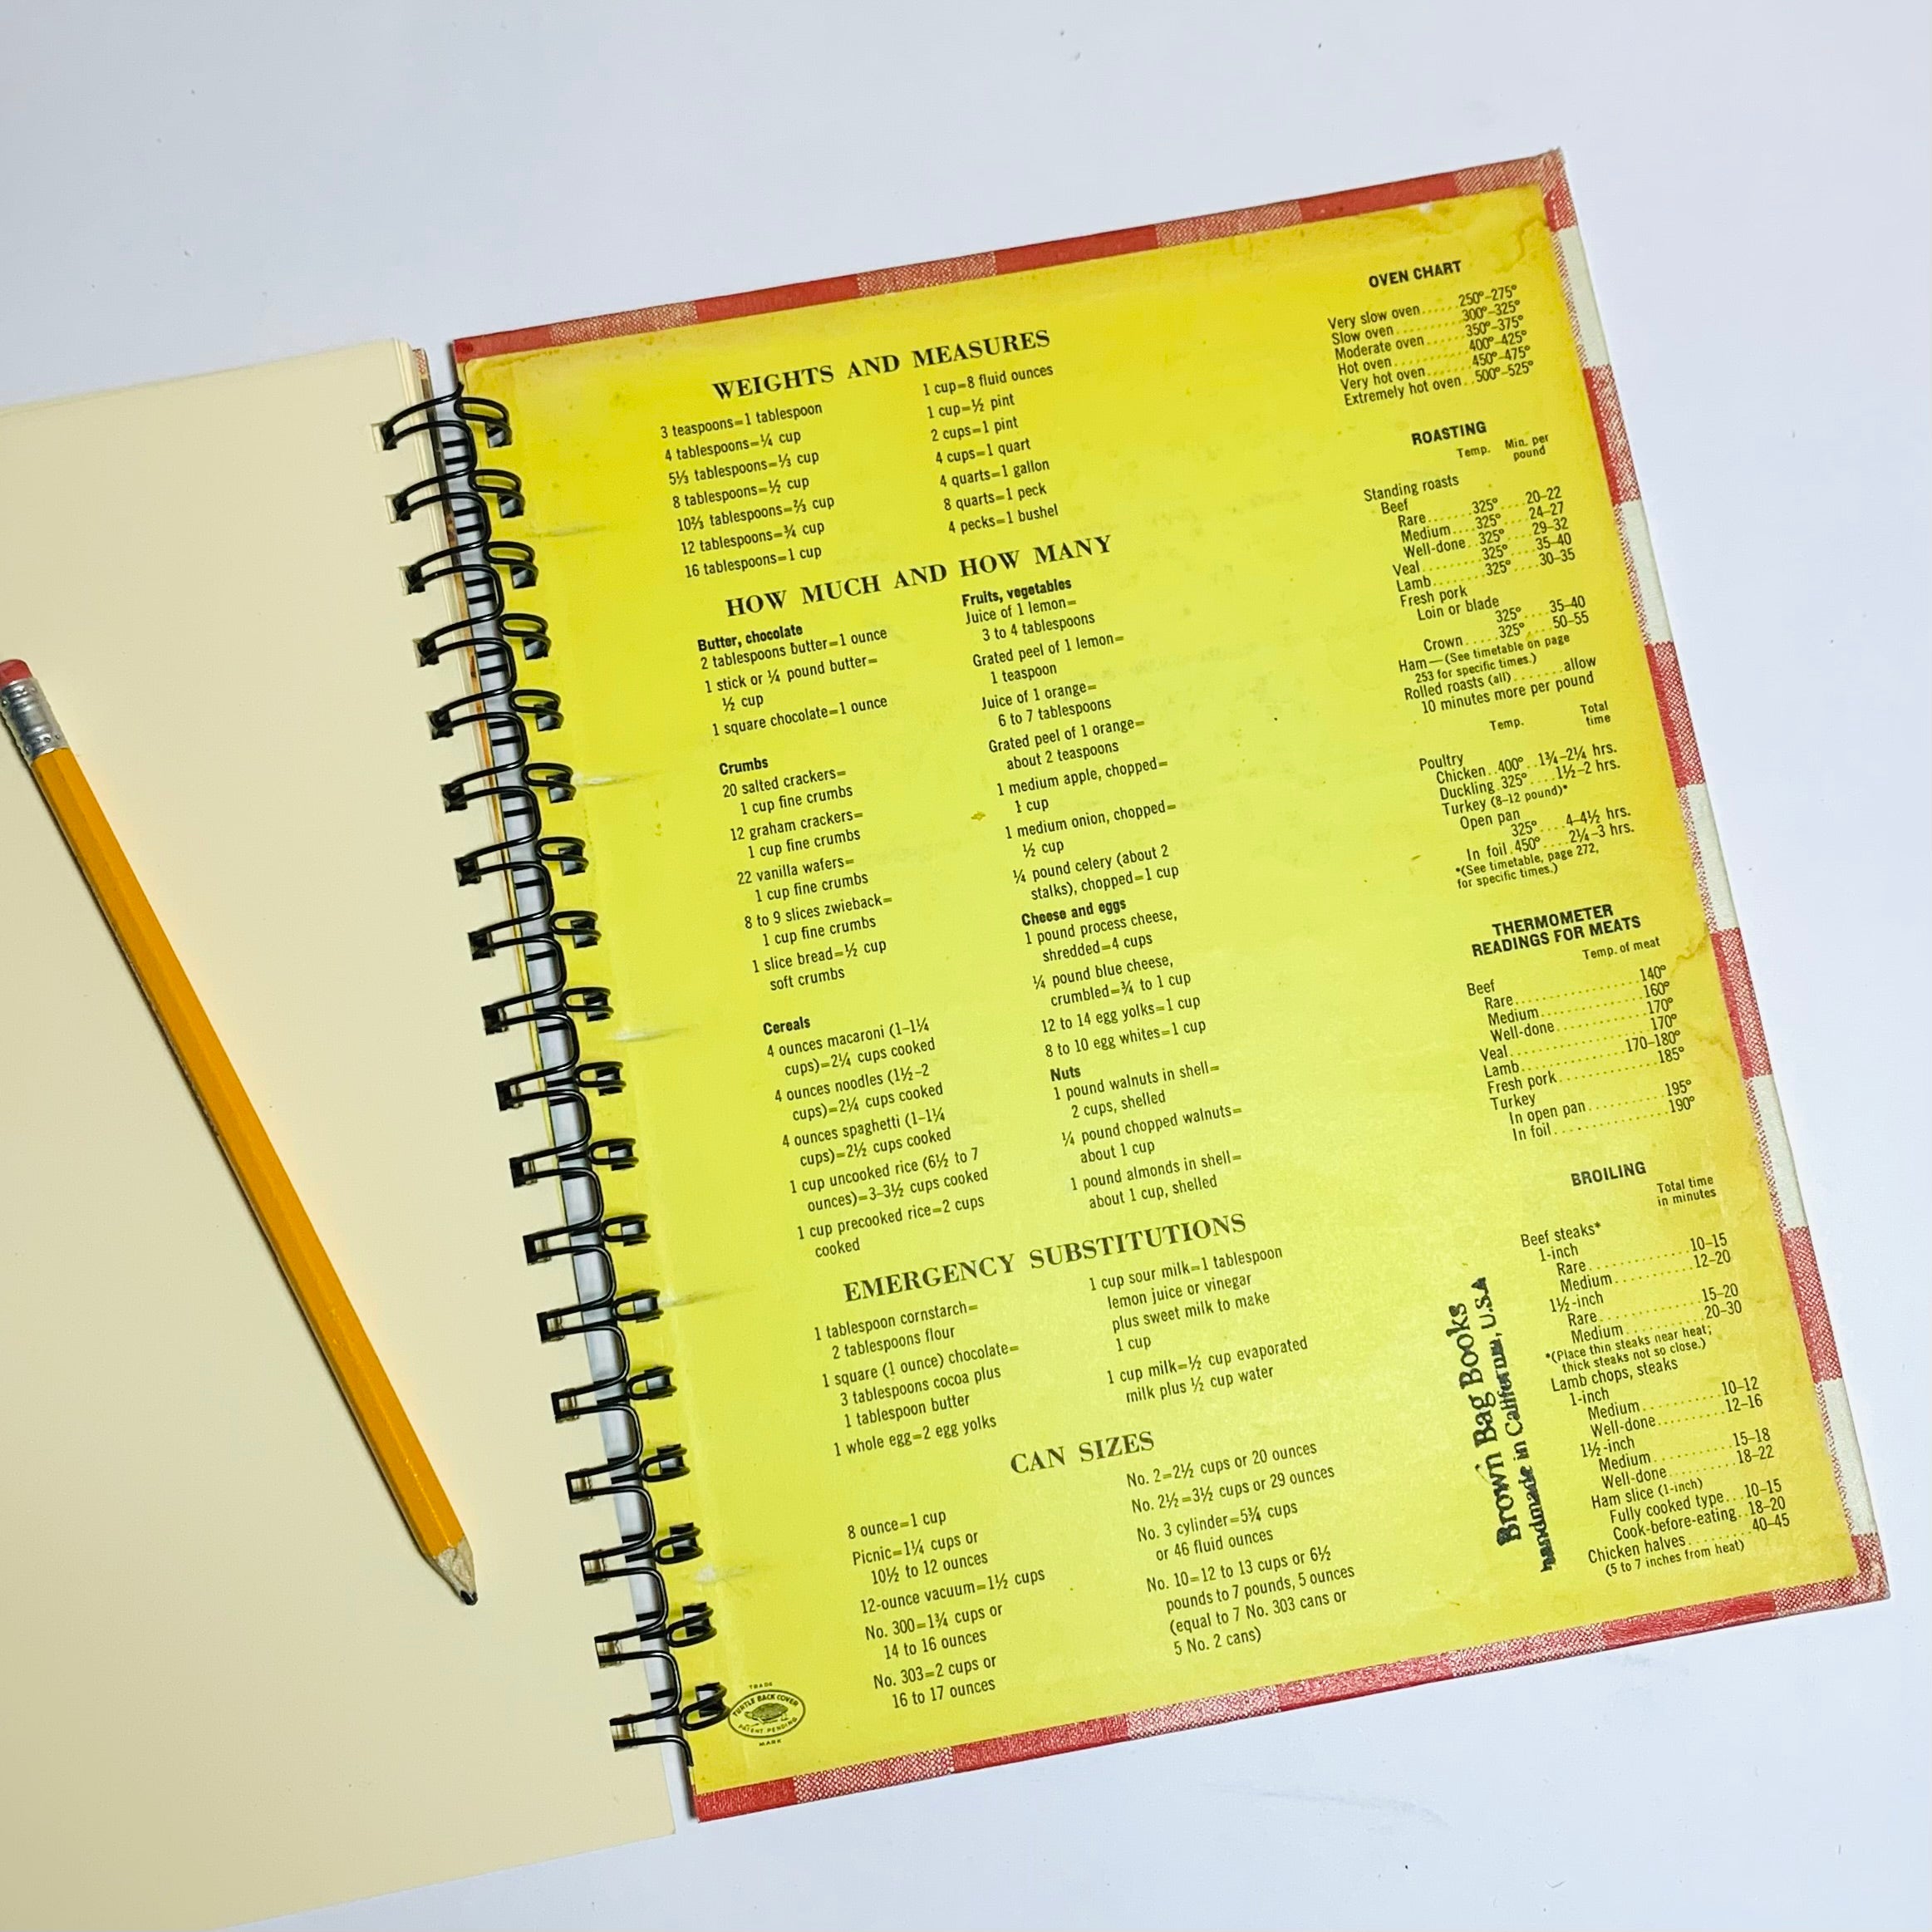 WEIGHTS AND MEASURES
3 teaspoons=1 tablespoon
4 tablespoons=¼ cup
5⅓ tablespoons=⅓ cup
8 tablespoons=½ cup
10⅔ tablespoons=⅔ cup
12 tablespoons=¾ cup
16 tablespoons=1 cup
1 cup=8 fluid ounces
1 cup=½ pint
2 cups=1 pint
4 cups=1 quart
4 quarts=1 gallon
8 quarts=1 peck
4 pecks=1 bushel
HOW MUCH AND HOW MANY
Butter, chocolate
2 tablespoons butter=1 ounce
1 stick or ¼ pound butter=
½ cup
1 square chocolate=1 ounce
Crumbs
20 salted crackers=
1 cup fine crumbs
12 graham crackers=
1 cup fine crumbs
22 vanilla wafers=
1 cup fine crumbs
8 to 9 slices zwieback=
1 cup fine crumbs
1 slice bread=½ cup
soft crumbs
Cereals
4 ounces macaroni (1–1¼
cups)=2¼ cups cooked
4 ounces noodles (1½–2
cups)=2¼ cups cooked
4 ounces spaghetti (1–1¼
cups)=2½ cups cooked
1 cup uncooked rice (6½ to 7
ounces)=3–3½ cups cooked
1 cup precooked rice=2 cups
cooked
Fruits, vegetables
Juice of 1 lemon=
3 to 4 tablespoons
Grated peel of 1 lemon=
1 teaspoon
Juice of 1 orange=
6 to 7 tablespoons
Grated peel of 1 orange=
about 2 teaspoons
1 medium apple, chopped=
1 cup
1 medium onion, chopped=
½ cup
¼ pound celery (about 2
stalks), chopped=1 cup
Cheese and eggs
1 pound process cheese,
shredded=4 cups
¼ pound blue cheese,
crumbled=¾ to 1 cup
12 to 14 egg yolks=1 cup
8 to 10 egg whites=1 cup
Nuts
1 pound walnuts in shell=
2 cups, shelled
¼ pound chopped walnuts=
about 1 cup
1 pound almonds in shell=
about 1 cup, shelled
EMERGENCY SUBSTITUTIONS
1 tablespoon cornstarch=
2 tablespoons flour
1 square (1 ounce) chocolate=
3 tablespoons cocoa plus
1 tablespoon butter
1 whole egg=2 egg yolks
1 cup sour milk=1 tablespoon
lemon juice or vinegar
plus sweet milk to make
1 cup
1 cup milk=½ cup evaporated
milk plus ½ cup water
CAN SIZES
8 ounce=1 cup
Picnic=1¼ cups or
10½ to 12 ounces
12-ounce vacuum=1½ cups
No. 300=1¾ cups or
14 to 16 ounces
No. 303=2 cups or
16 to 17 ounces
No. 2=2½ cups or 20 ounces
No. 2½=3½ cups or 29 ounces
No. 3 cylinder=5¾ cups
or 46 fluid ounces
No. 10=12 to 13 cups or 6½
pounds to 7 pounds, 5 ounces
(equal to 7 No. 303 cans or
5 No. 2 cans)
TRADE
TURTLE BACK COVER
PATENT PENDING
MARK
OVEN CHART
Very slow oven......250°–275°
Slow oven..........300°–325°
Moderate oven......350°–375°
Hot oven..........400°–425°
Very hot oven.......450°–475°
Extremely hot oven..500°–525°
ROASTING
Temp. Min. per
pound
Standing roasts
Beef
Rare.......325°....20–22
Medium....325°....24–27
Well-done..325°....29–32
Veal........325°....35–40
Lamb.......325°....30–35
Fresh pork
Loin or blade
325°....35–40
Crown.....325°....50–55
Ham—(See timetable on page
253 for specific times.)
Rolled roasts (all).......allow
10 minutes more per pound
Temp. Total
time
Poultry
Chicken..400°..1¾–2¼ hrs.
Duckling.325°....1½–2 hrs.
Turkey (8–12 pound)*
Open pan
325°....4–4½ hrs.
In foil.450°....2¼–3 hrs.
*(See timetable, page 272,
for specific times.)
THERMOMETER
READINGS FOR MEATS
Temp. of meat
Beef
Rare................140°
Medium.............160°
Well-done...........170°
Veal.................170°
Lamb.............170–180°
Fresh pork............185°
Turkey
In open pan..........195°
In foil..............190°
BROILING
Total time
in minutes
Beef steaks*
1-inch
Rare.............10–15
Medium..........12–20
1½-inch
Rare.............15–20
Medium..........20–30
*(Place thin steaks near heat;
thick steaks not so close.)
Lamb chops, steaks
1-inch
Medium..........10–12
Well-done........12–16
1½-inch
Medium..........15–18
Well-done........18–22
Ham slice (1-inch)
Fully cooked type...10–15
Cook-before-eating..18–20
Chicken halves.......40–45
(5 to 7 inches from heat)
Brown Bag Books
handmade in California, U.S.A